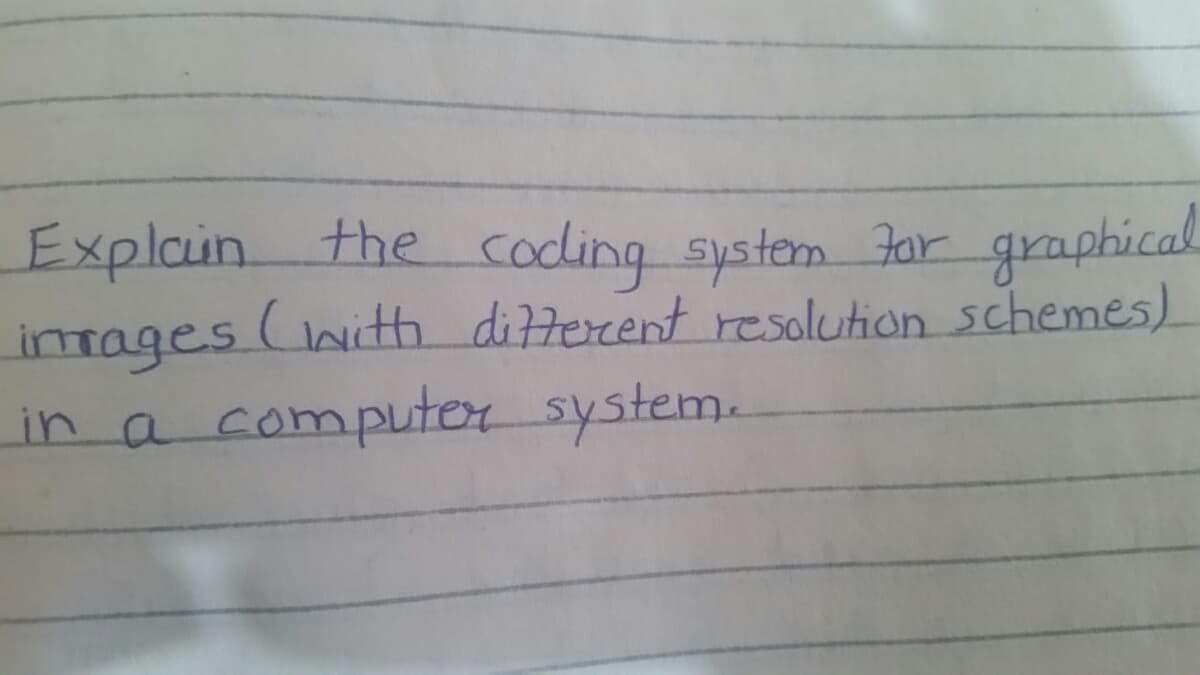 Explain the coding system for graphical
images (with different resolution schemes)
in a computer system.